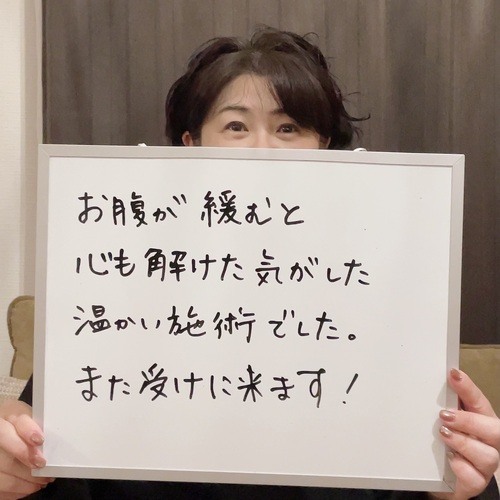 お腹が緩むと
心も解けた気がした
温かい施術でした。
また受けに来ます！